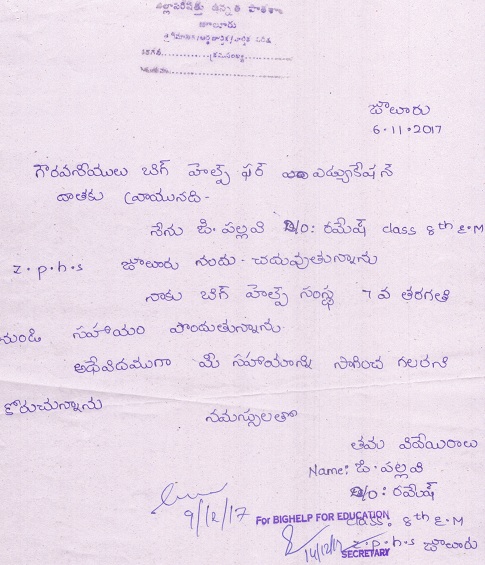 జిల్లాపరిషత్తు ఉన్నత పాఠశాల
జూలూరు
జూలూరు
6.11.2017
గౌరవనీయులు బిగ్ హెల్ప్ ఫర్ ఎడ్యుకేషన్
దాతకు వ్రాయునది-
నేను జి. పల్లవి D/o: రమేష్ class 8th E.M
z.p.h.s జూలూరు నందు. చదువుతున్నాను
నాకు బిగ్ హెల్ప్ సంస్థ 7 వ తరగతి
నుండి సహాయం పొందుతున్నాను.
అదేవిదముగా మీ సహాయాన్ని సాగించ గలరని
కోరుచున్నాను
నమస్సులతో
తమ విదేయురాలు
Name: జి. పల్లవి
D/o: రమేష్
9/12/17
For BIGHELP FOR EDUCATION
class: 8th E.M
14/12/17
SECRETARY
z.p.h.s జూలూరు